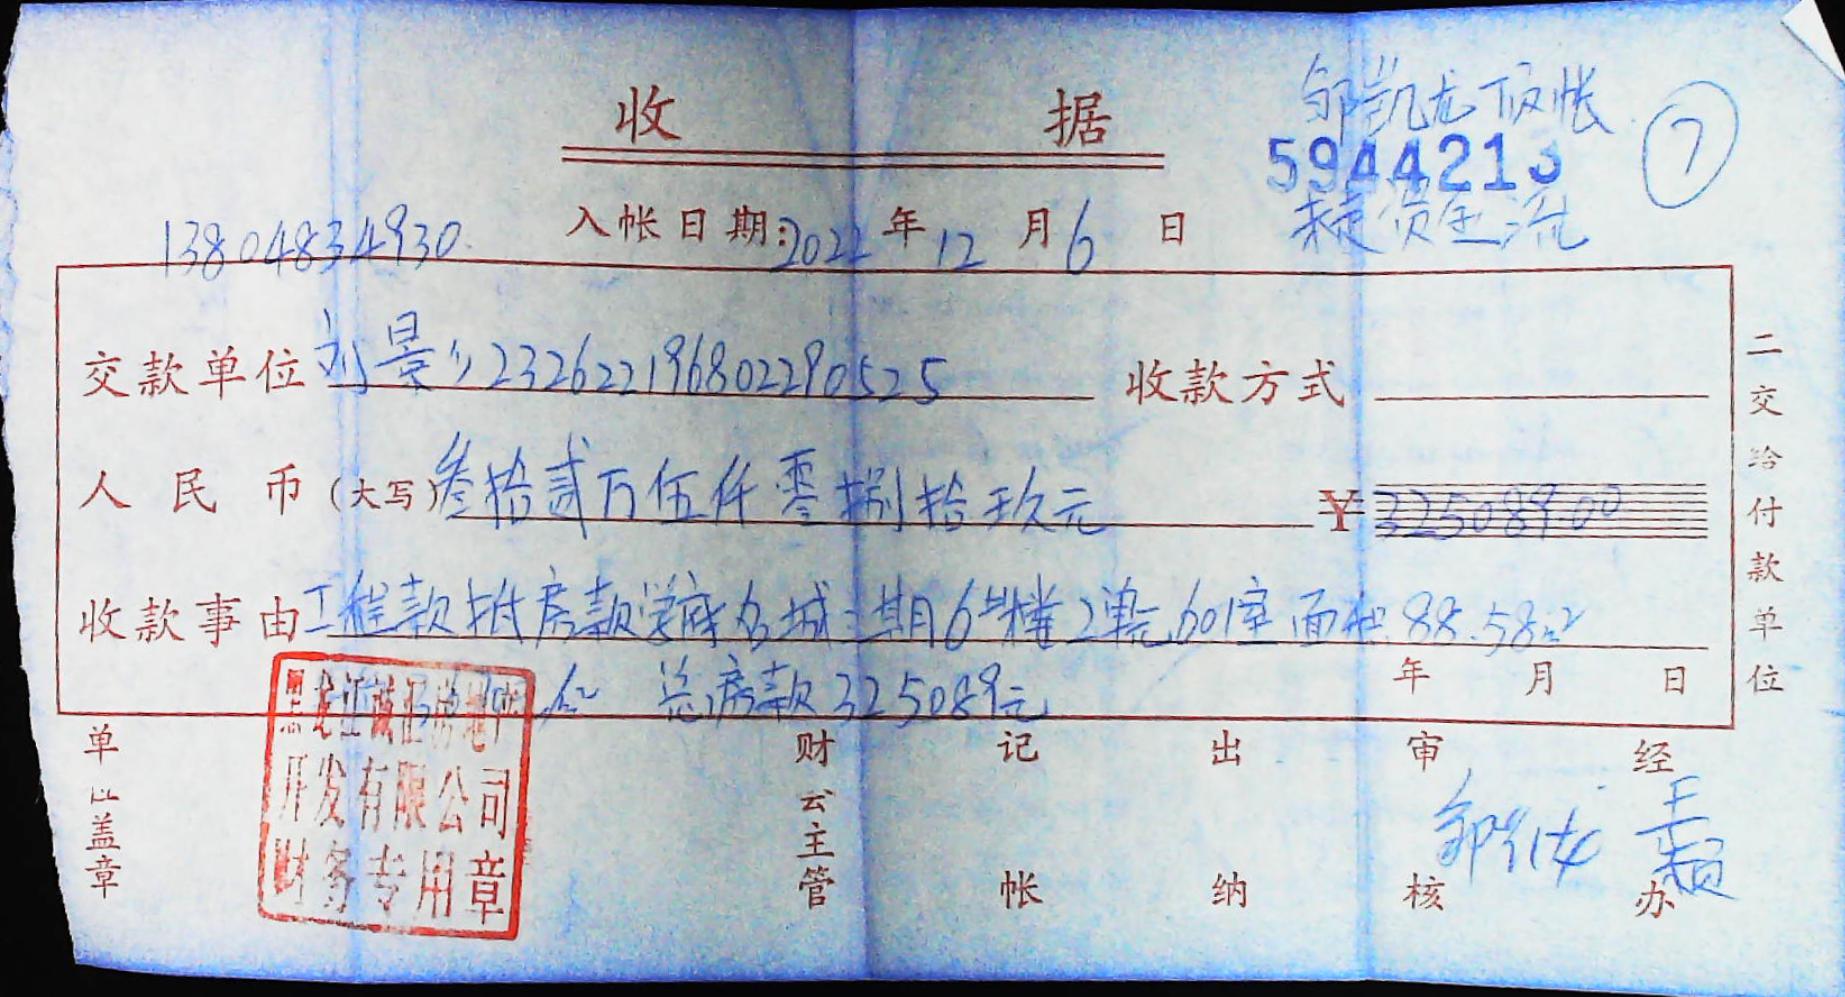 收 据
邹凯龙顶帐
5944213
⑦
13804834930
入帐日期:2022年12月6日
资金流
交款单位 刘景 232622196802290525 收款方式
人民币(大写)叁拾贰万伍仟零捌拾玖元 ¥325089.00
收款事由 工程款抵房款学府名城二期6号楼2单元601室面积88.58m2
总房款325089元 年 月 日
二交给付款单位
黑龙江诚 房地产
开发有限公司
财务专用章
单位盖章 财会主管 记帐 出纳 审核 经办
王颖